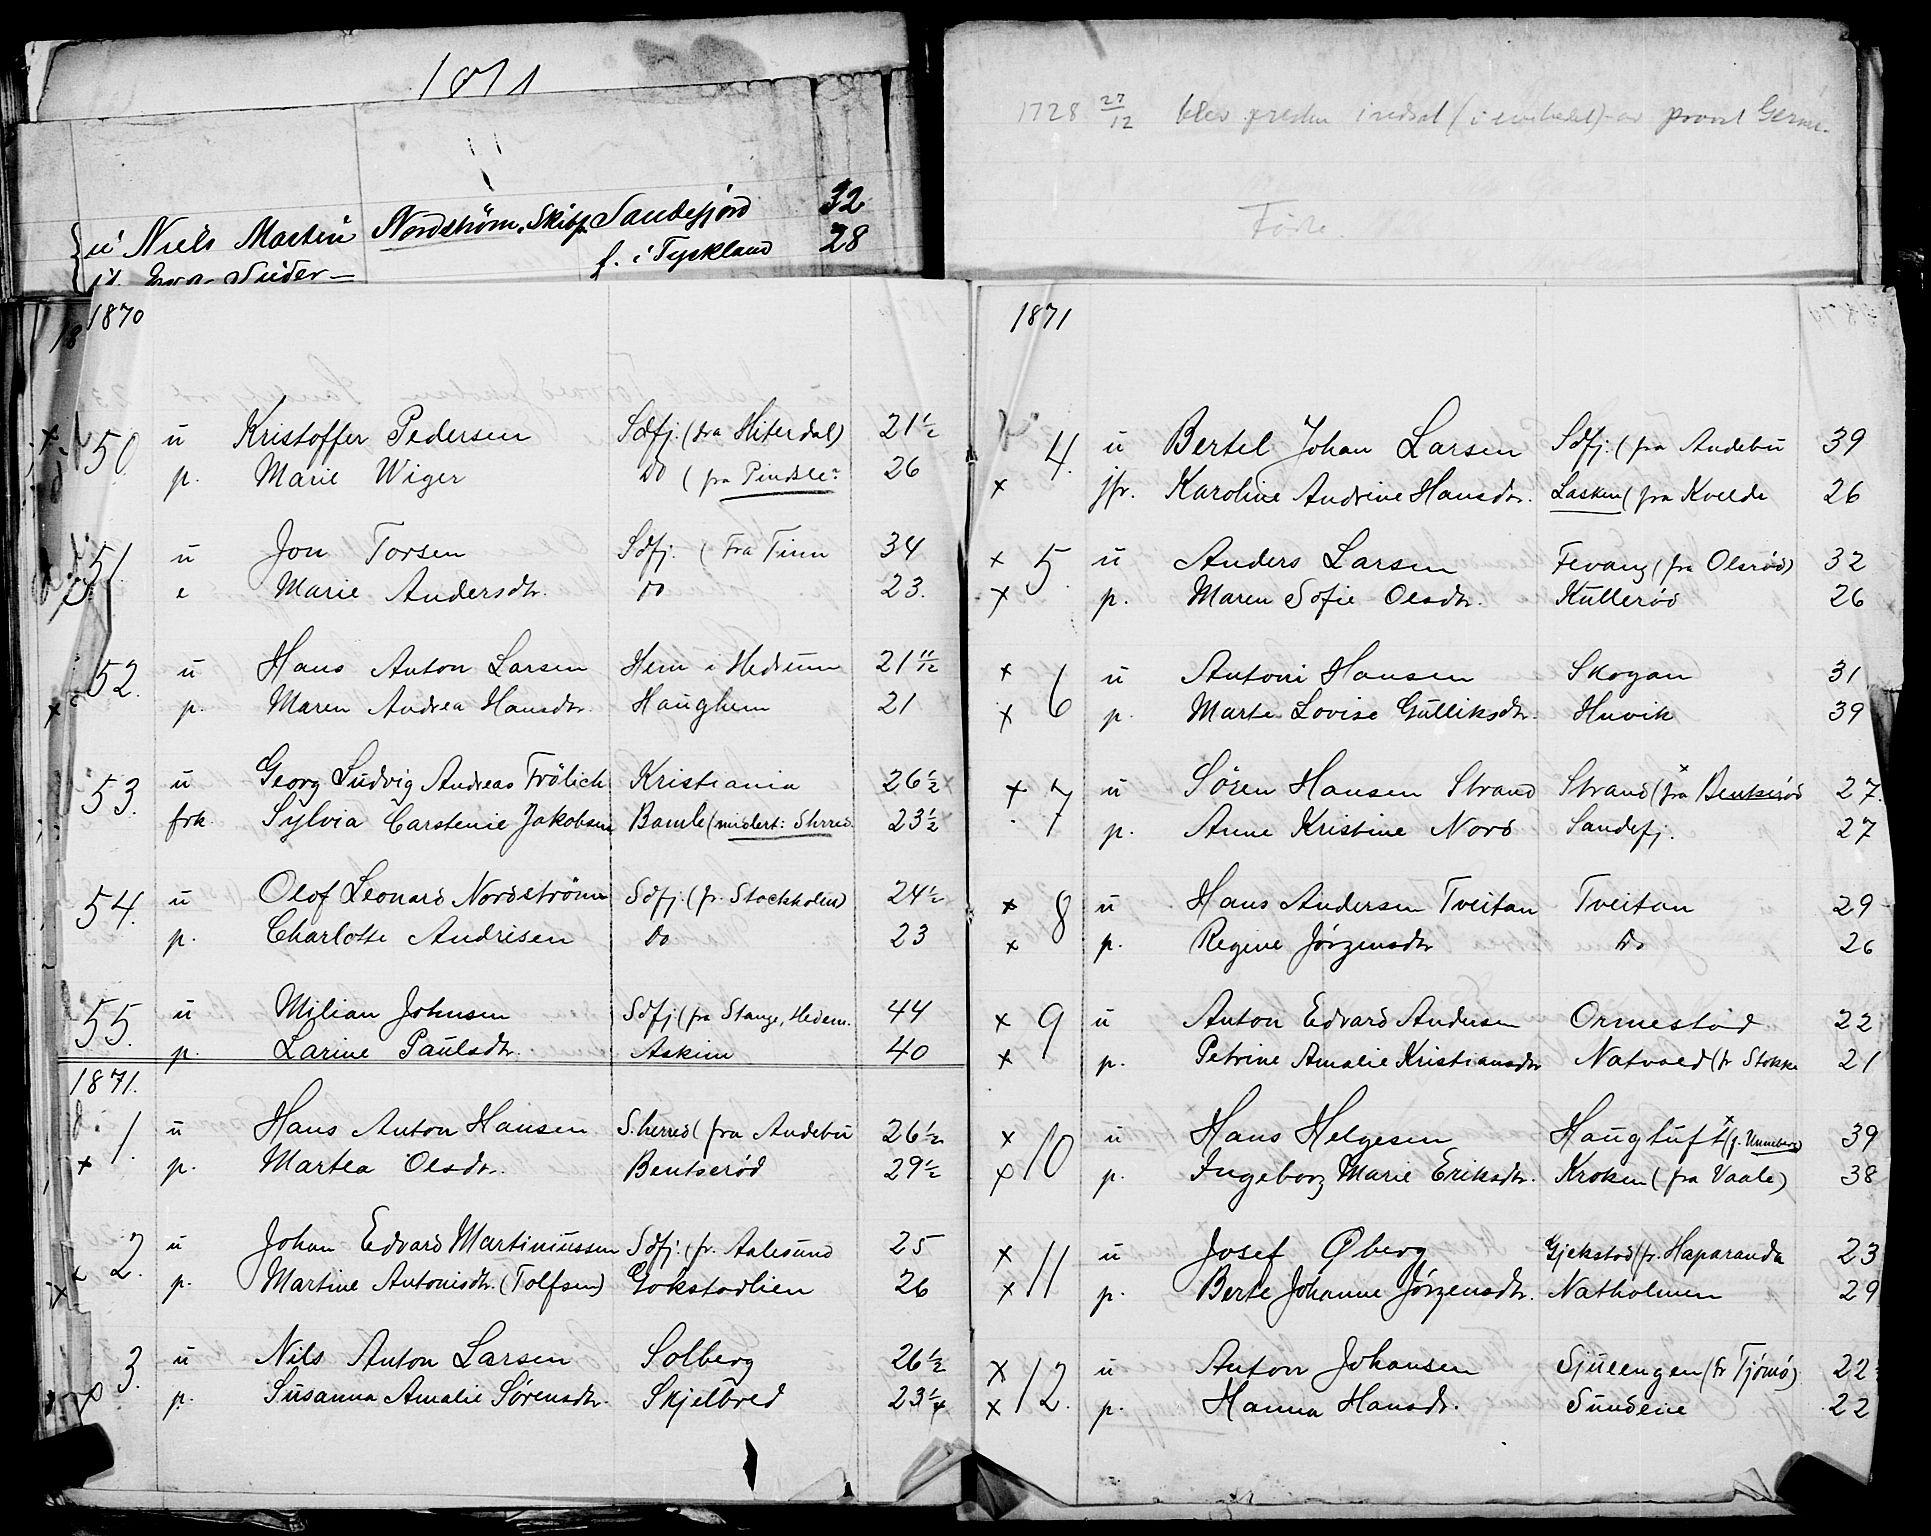 1871
u Niels Martin Nordström, Skibsf. Sandefjord 32
f. i Tyskland 28
1728 27/12 blev presten indsat av provst
Födte.
1870
50. u Kristoffer Pedersen Sdfj. (fra Hiterdal) 21 1/2
p. Marie Wiger do (fra Pindsle? 26
51. u Jon Torsen Sdfj. (Fra Tinn 34
e Marie Andersdtr. do 23.
52. u Hans Anton Larsen Hem i Hedrum 21 11/12
p. Maren Andrea Hansdtr. Haughem 21
53. u Georg Ludvig Andreas Frölich Kristiania 26 1/2
frk. Sylvia Carstenie Jakobsen Bamle (midlert: Sherred. 23 1/2
54. u Olof Leonard Nordström Sdfj. (fr. Stockholm) 24 1/2
p. Charlotte Andrisen do 23
55. u Milian Johnsen Sdfj. (fra Stange, Hedem. 44
p. Larine Paulsdtr. Askim 40
1871.
1. u Hans Anton Hansen S.herred (fra Andebu 26 1/2
x p. Martea Olsdtr. Bentserød 29 1/2
2. u Johan Edvard Martiniussen Sdfj. (fr. Aalesund 25
x p. Martine Antonisdtr. (Tolfsen) Gokstadlien 26
3. u Nils Anton Larsen Solberg 26 1/2
x p. Susanna Amalie Sørensdtr. Skjelbred 23 1/4
1871
4. u Bertel Johan Larsen Sdfj. (fra Andebu 39
x jfr. Karoline Andrine Hansdtr. Lasken (fra Kvelde 26
x 5. u Anders Larsen Fevang (fra Olsrød) 32
x p. Maren Sofie Olsdtr. Kullerød 26
x 6 u Antoni Hansen Skogan 31
x p. Marte Lovise Gulliksdtr. Huvik 39
x 7 u Sören Hansen Strand Strand (fra Bentserød 27.
p. Anne Kristine Nord Sandefj. 27
x 8 u Hans Andersen Tveitan Tveitan 29
x p. Regine Jörgensdtr Do 26
x 9 u Anton Edvard Andersen Ormestad 22
x p. Petrine Amalie Kristiansdtr Natvald (fr Stokke 21
x 10 u Hans Helgesen Haugtuft (f. Unneberg) 39
x p. Ingeborg Marie Eriksdtr. Kroken (fra Vaale) 38
x 11 u Josef Øberg Gjekstad (fr. Haparanda 23
x p. Berte Johanne Jörgensdtr. Natholmen 29
x 12. u Anton Johansen Sjuengen (fr Tjömö) 22
x p. Hanna Hansdtr. Sundene 22